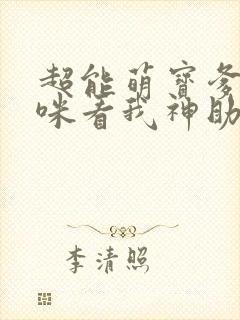 超能萌寶爹
咪看我神助
李清照